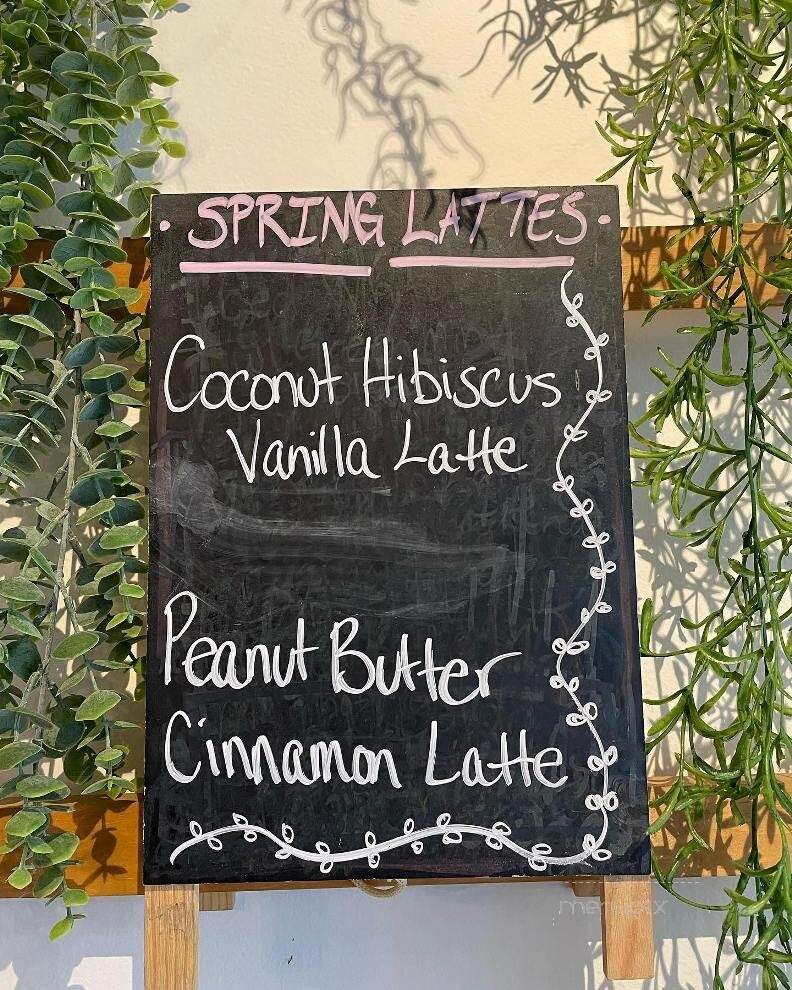 • SPRING LATTES •
Coconut Hibiscus
Vanilla Latte
Peanut Butter
Cinnamon Latte